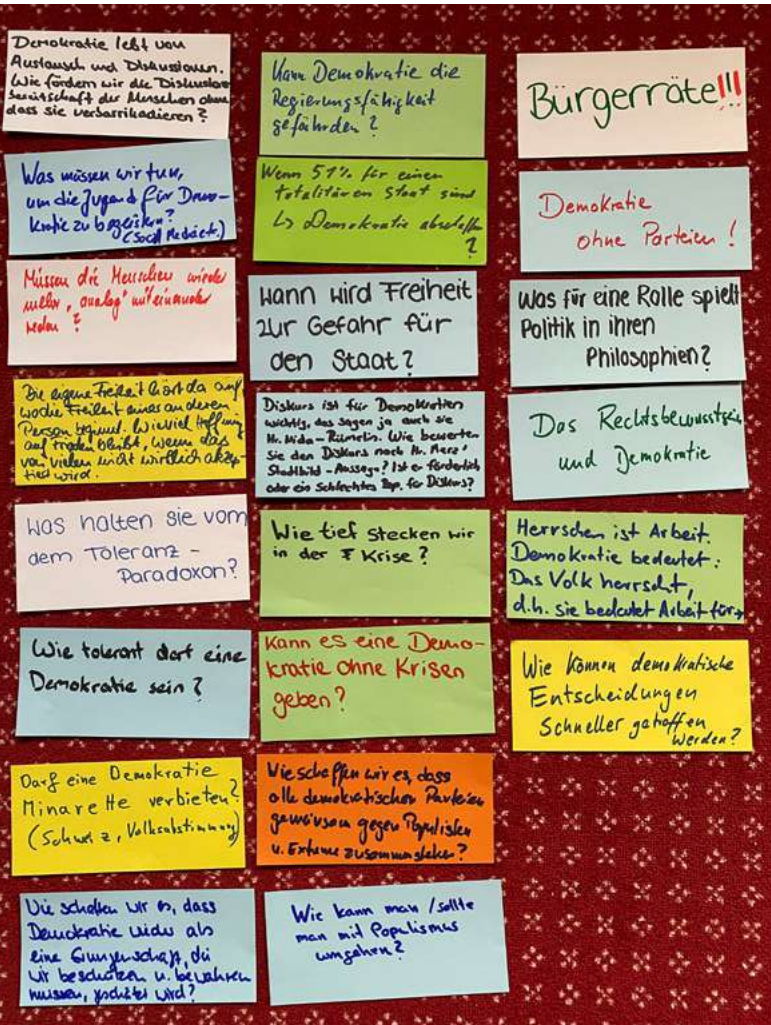 Demokratie lebt von
Austausch und Diskussionen.
Wie fördern wir die Diskussions-
bereitschaft der Menschen ohne
dass sie verbarrikadieren?
Was müssen wir tun,
um die Jugend für Demo-
kratie zu begeistern?
(Social Media etc.)
Müssen die Menschen wieder
mehr "analog" miteinander
reden?
Die eigene Freiheit hört da auf
wo die Freiheit eines anderen
Person beginnt. Wieviel Hoffnung
auf Frieden bleibt, wenn das
von vielen nicht wirklich akzep-
tiert wird.
Was halten sie vom
dem Toleranz-
Paradoxon?
Wie tolerant darf eine
Demokratie sein?
Darf eine Demokratie
Minarette verbieten?
(Schweiz, Volksabstimmung)
Wie schaffen wir es, dass
Demokratie wieder als
eine Errungenschaft, die
wir beschützen u. bewahren
müssen, geschätzt wird?
Kann Demokratie die
Regierungsfähigkeit
gefährden?
Wenn 51% für einen
totalitären Staat sind
↳ Demokratie abschaffen
?
Wann wird Freiheit
zur Gefahr für
den Staat?
Diskurs ist für Demokratien
wichtig, das sagen ja auch sie
Hr. Nida-Rümelin. Wie bewerten
sie den Diskurs nach Hr. Merz'
Stadtbild-Aussage? Ist er förderlich
oder ein schlechtes Bsp. für Diskurs?
Wie tief stecken wir
in der Krise?
Kann es eine Demo-
kratie ohne Krisen
geben?
Wie schaffen wir es, dass
alle demokratischen Parteien
gemeinsam gegen Populisten
u. Extreme zusammenstehen?
Wie kann man / sollte
man mit Populismus
umgehen?
Bürgerräte!!!
Demokratie
ohne Parteien!
Was für eine Rolle spielt
Politik in ihren
Philosophien?
Das Rechtsbewusstsein
und Demokratie
Herrschen ist Arbeit.
Demokratie bedeutet:
Das Volk herrscht,
d.h. sie bedeutet Arbeit für→
Wie können demokratische
Entscheidungen
Schneller getroffen
werden?